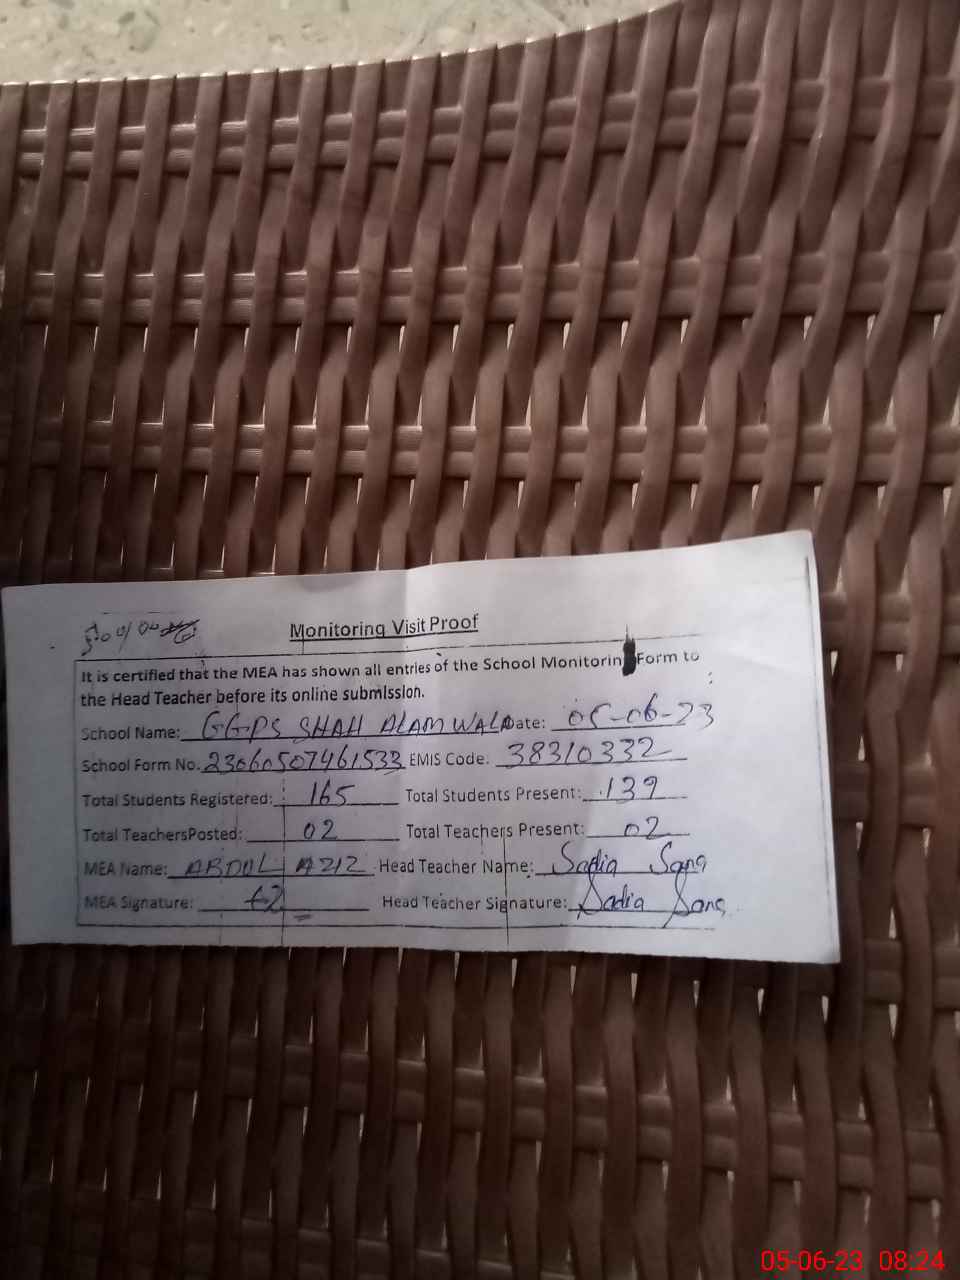 Monitoring Visit Proof
It is certified that the MEA has shown all entries of the School Monitorin Form to
the Head Teacher before its online submission.
School Name: GGPS SHAH ALAM WALA Date: 05-06-23
School Form No. 23060507461533 EMIS Code: 38310332
Total Students Registered: 165 Total Students Present: 139
Total TeachersPosted: 02 Total Teachers Present: 02
MEA Name: ABDUL AZIZ Head Teacher Name: Sadia Sana
MEA Signature: Head Teacher Signature: Sadia Sana
05-06-23 08:24